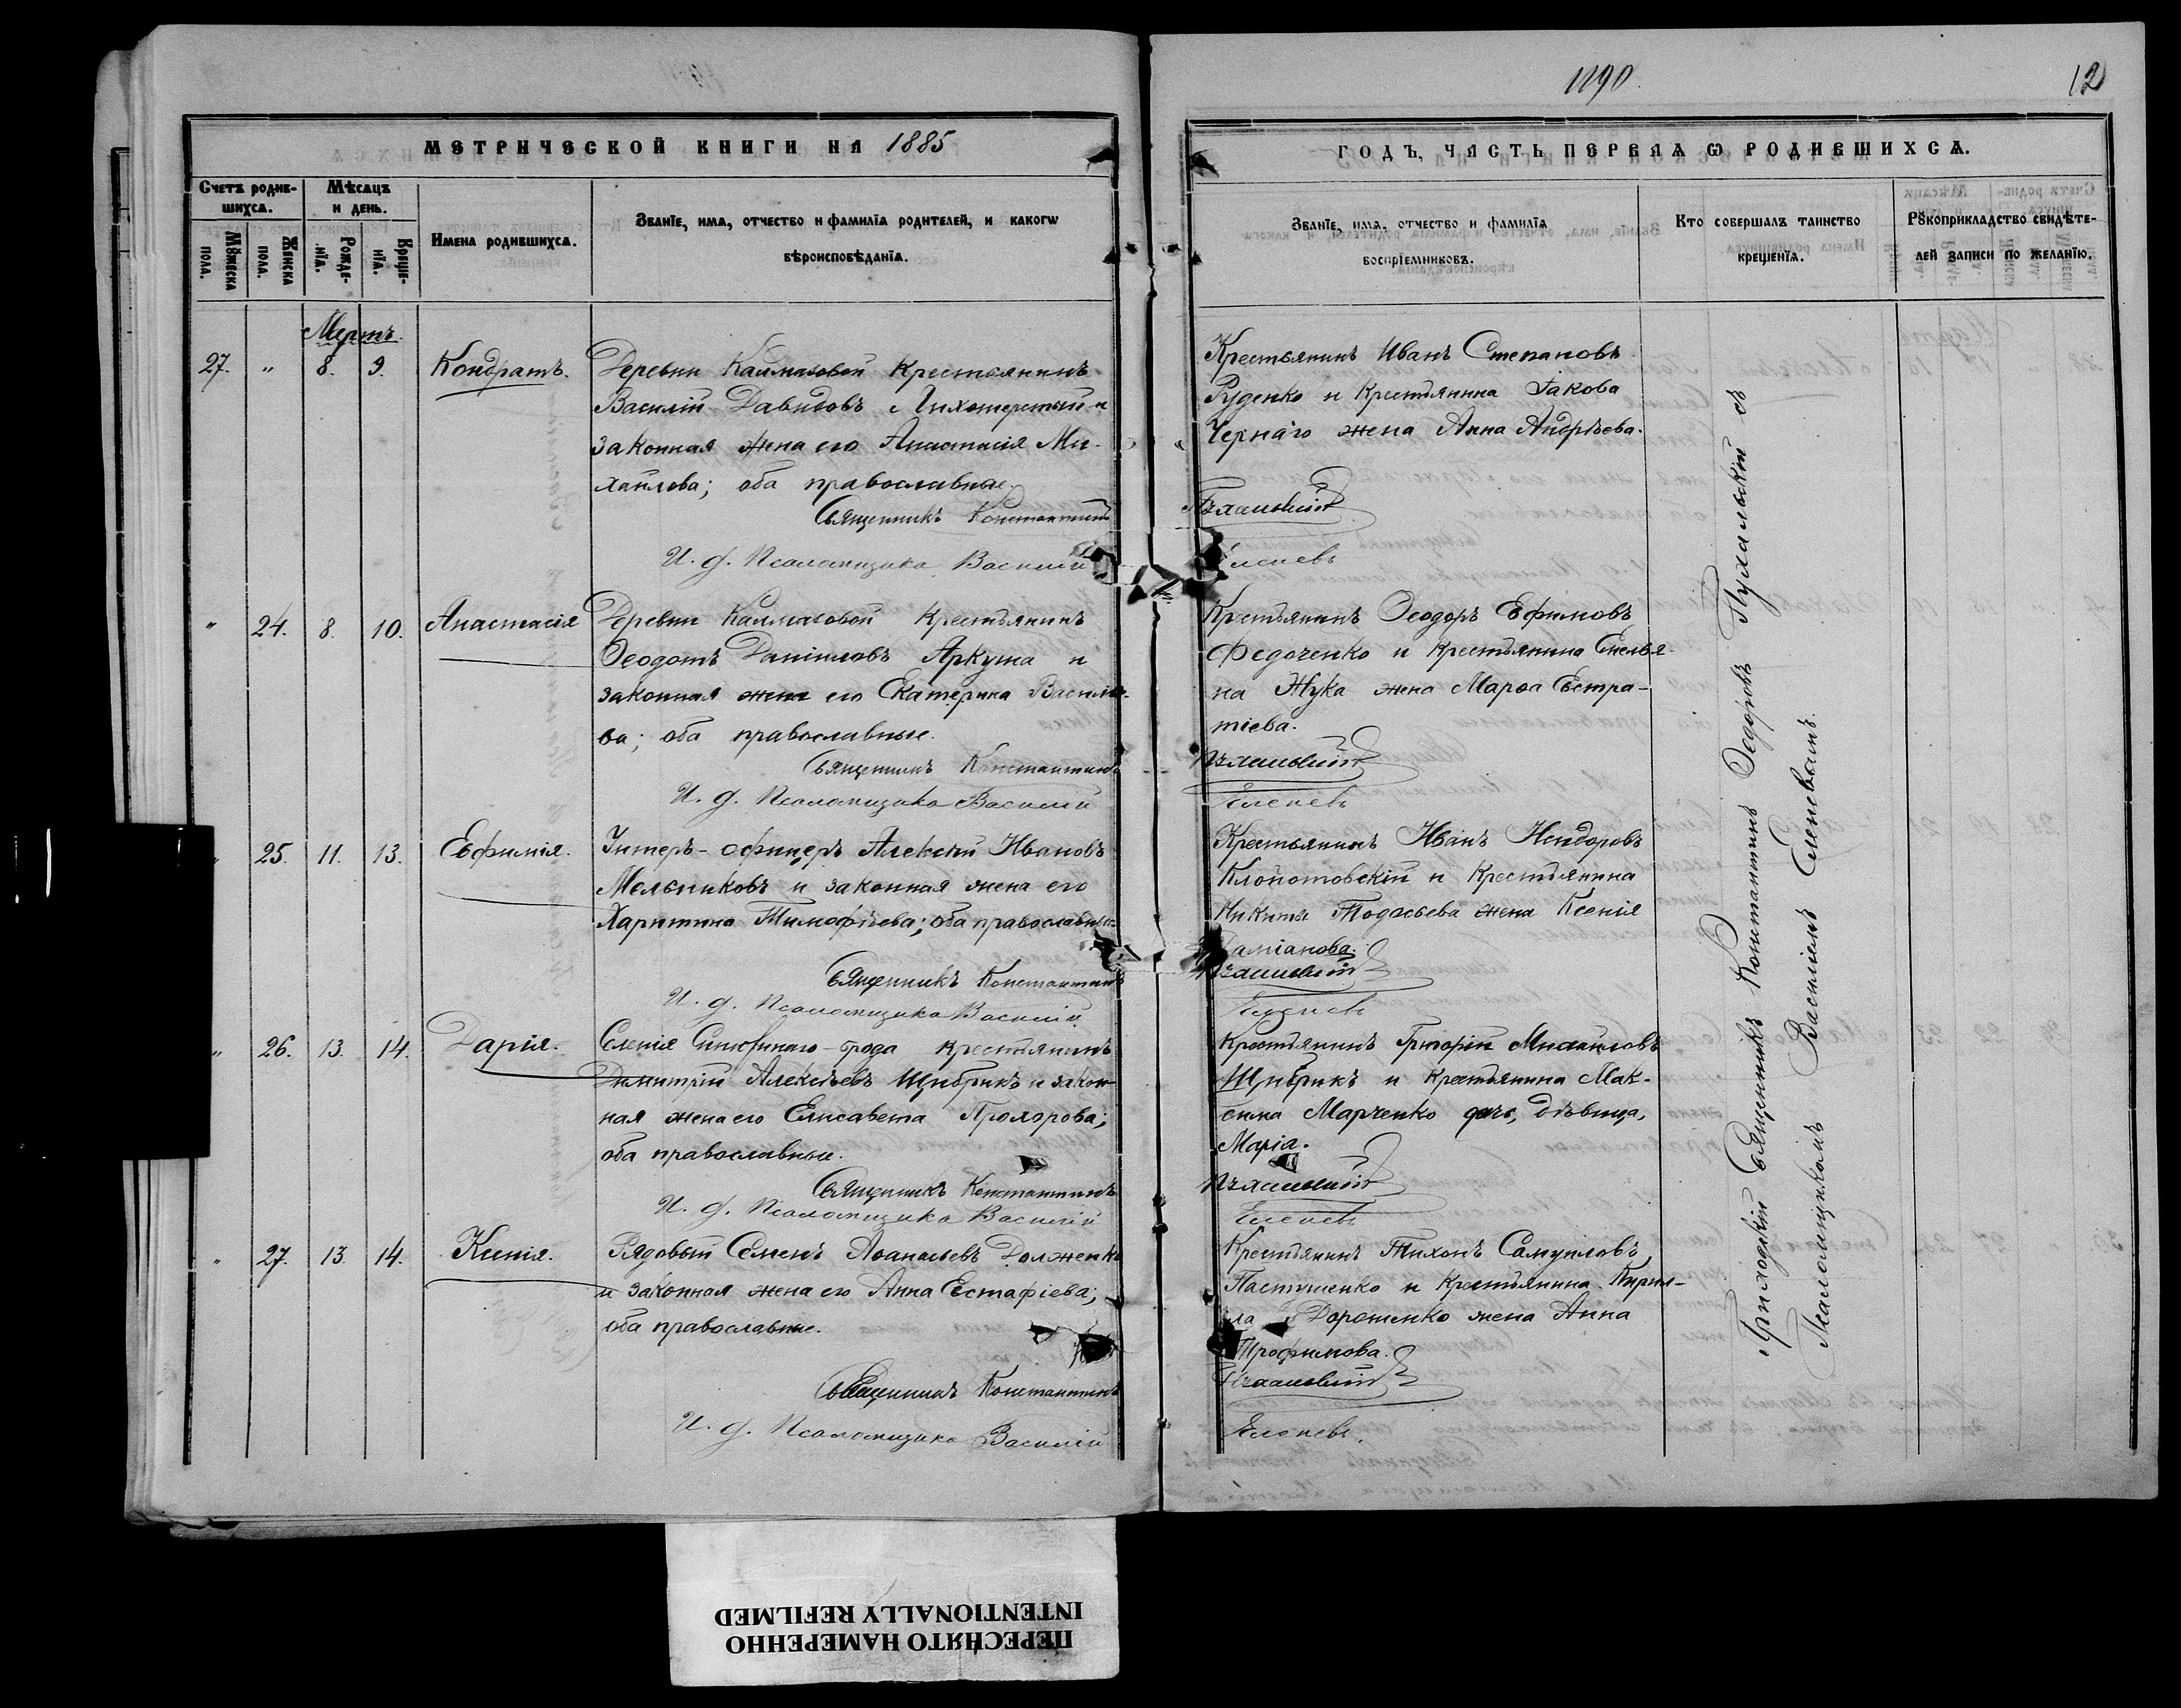 1890.
12
МЕТРИЧЕСКОЙ КНИГИ НА 1885
ГОДЪ, ЧАСТЬ ПЕРВАЯ Ѡ РОДИВШИХСѦ.
Счетъ родив-
шихсѧ.
Мꙋжеска
пола.
Женска
пола.
Мѣсѧцъ
и день.
Рожде-
нїѧ.
Креще-
нїѧ.
Имена родившихсѧ.
Званїе, имѧ, отчество и фамилїѧ родителей, и какогѡ
вѣроисповѣданїѧ.
Званїе, имѧ, отчество и фамилїѧ
воспрїемниковъ.
Кто совершалъ таинство
крещенїѧ.
Рꙋкоприкладство свидѣте-
лей записи по желанїю.
Мартъ.
27. " 8. 9. Кондратъ.
Деревни Калмазовой крестьянинъ
Василій Давидовъ Лихошерстый и
законная жена его Анастасія Ми-
хаилова; оба православные.
Священникъ Константинъ
И. д. Псаломщика Василій
Крестьянинъ Иванъ Степановъ
Руденко и крестьянина Іакова
Чернаго жена Анна Андрѣева.
Пухальскій
Слепневъ
" 24. 8. 10. Анастасія
Деревни Калмазовой крестьянинъ
Ѳеодотъ Даніиловъ Аркуша и
законная жена его Екатерина Василье-
ва; оба православные.
Священникъ Константинъ
И. д. Псаломщика Василій
Крестьянинъ Ѳеодоръ Ефимовъ
Федоченко и крестьянина Емелья-
на Жука жена Марѳа Евстра-
тіева.
Пухальскій
" 25. 11. 13. Евфимія.
Унтеръ-офицеръ Алексій Ивановъ
Мельниковъ и законная жена его
Харитина Тимофѣева; оба православные.
Священникъ Константинъ
И. д. Псаломщика Василій
Крестьянинъ Иванъ Исидоровъ
Клопотовскій и крестьянина
Никиты жена Ксенія
Даміанова.
Пухальскій
" 26. 13. 14. Дарія.
Селенія Синюхинаго-брода крестьянинъ
Димитрій Алексѣевъ Щибрикъ и закон-
ная жена его Елисавета Прохорова;
оба православные.
Священникъ Константинъ
И. д. Псаломщика Василій
Крестьянинъ Григорій Михаиловъ
Щибрикъ и крестьянина Мак-
сима Марченко дочь, дѣвица,
Марія.
Пухальскій
" 27. 13. 14. Ксенія.
Рядовый Семенъ Аѳанасьевъ Долженко
и законная жена его Анна Евстафіева;
оба православные.
Священникъ Константинъ
И. д. Псаломщика Василій
Крестьянинъ Тихонъ Самуиловъ
Пастушенко и крестьянина Кирил-
ла Дорошенко жена Анна
Трофимова.
Пухальскій
Приходскій Священникъ Константинъ Ѳедоровъ Пухальскій съ
Псаломщикомъ Василіемъ
ПЕРЕСНЯТО НАМЕРЕННО
INTENTIONALLY REFILMED